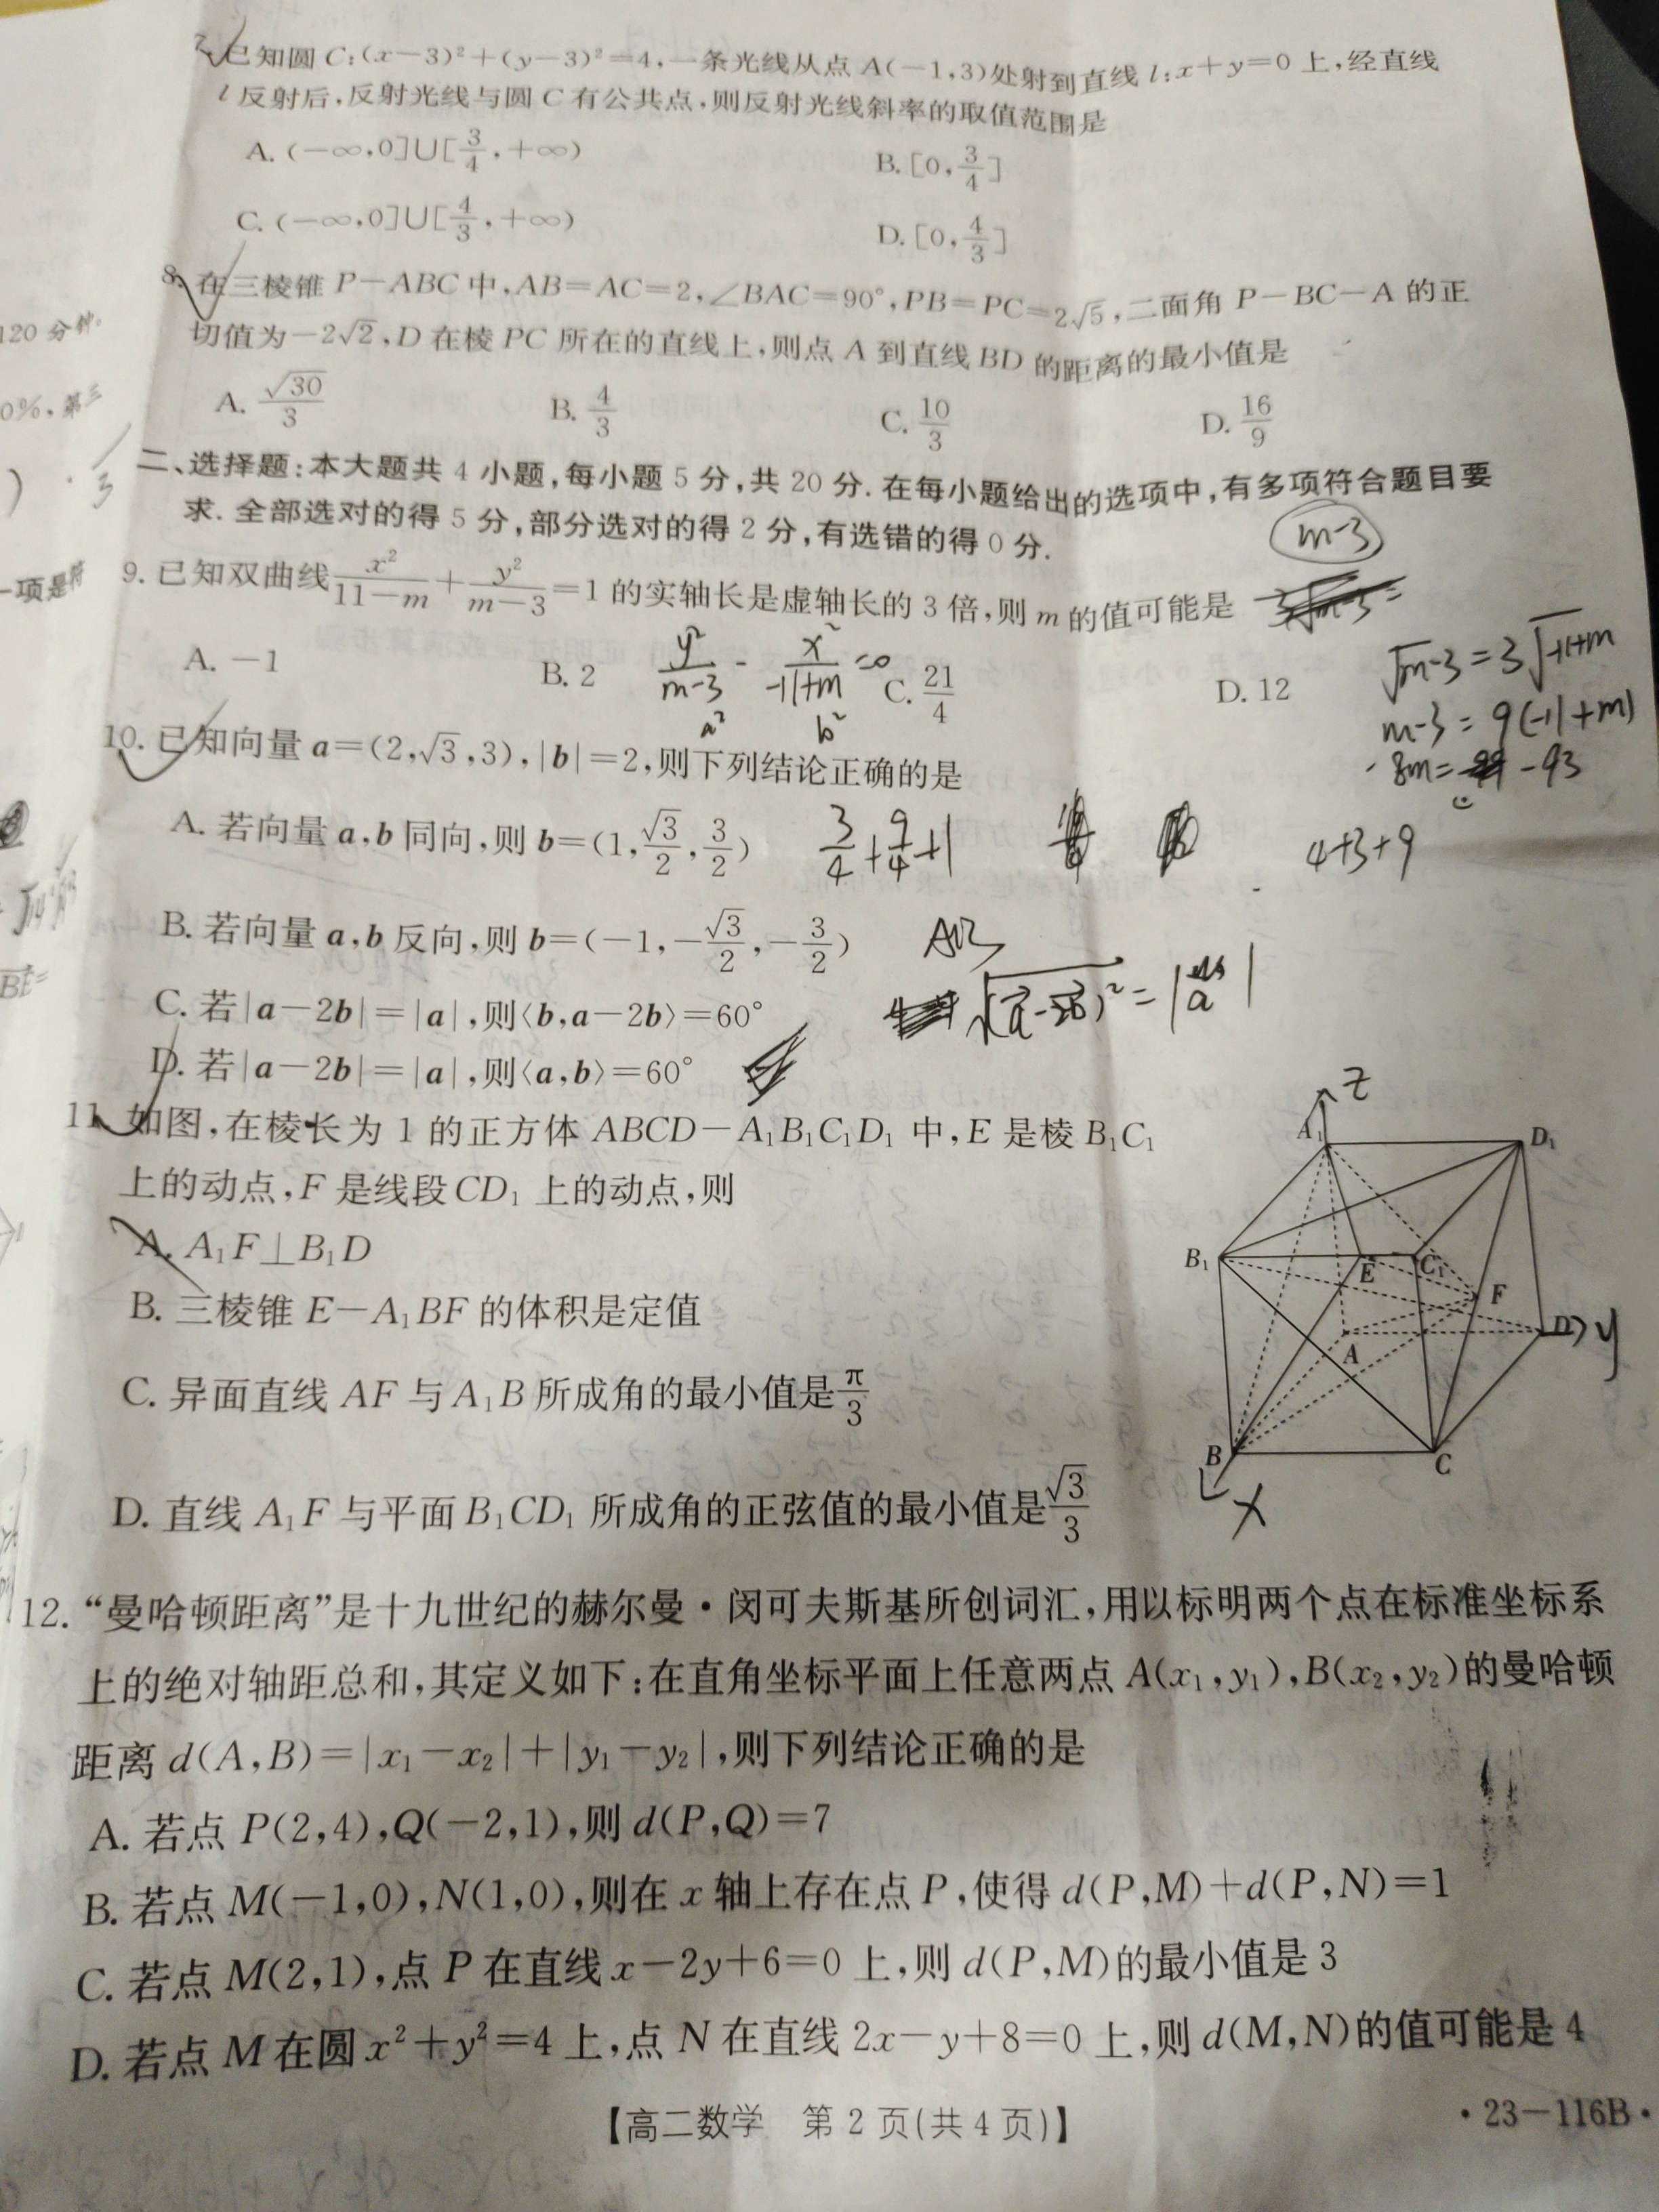 7. 已知圆 C:(x-3)²+(y-3)²=4,一条光线从点 A(-1,3)处射到直线 l:x+y=0 上,经直线
l 反射后,反射光线与圆 C 有公共点,则反射光线斜率的取值范围是
A. (-∞,0]∪[3/4,+∞) B. [0,3/4]
C. (-∞,0]∪[4/3,+∞) D. [0,4/3]
8. 在三棱锥 P-ABC 中,AB=AC=2,∠BAC=90°,PB=PC=2√5,二面角 P-BC-A 的正
切值为-2√2,D 在棱 PC 所在的直线上,则点 A 到直线 BD 的距离的最小值是
A. √30/3 B. 4/3 C. 10/3 D. 16/9
二、选择题:本大题共 4 小题,每小题 5 分,共 20 分. 在每小题给出的选项中,有多项符合题目要
求. 全部选对的得 5 分,部分选对的得 2 分,有选错的得 0 分.
m-3
9. 已知双曲线 x²/(11-m)+y²/(m-3)=1 的实轴长是虚轴长的 3 倍,则 m 的值可能是
A. -1 B. 2 C. 21/4 D. 12
y²/(m-3) - x²/(-11+m) =0
a² b²
√m-3 = 3√-11+m
m-3 = 9(-11+m)
-8m= -93
10. 已知向量 a=(2,√3,3),|b|=2,则下列结论正确的是
A. 若向量 a,b 同向,则 b=(1,√3/2,3/2)
3/4+9/4+1
4+3+9
B. 若向量 a,b 反向,则 b=(-1,-√3/2,-3/2)
C. 若|a-2b|=|a|,则⟨b,a-2b⟩=60°
√(a-2b)² = |a|
D. 若|a-2b|=|a|,则⟨a,b⟩=60°
11. 如图,在棱长为 1 的正方体 ABCD-A₁B₁C₁D₁ 中,E 是棱 B₁C₁
上的动点,F 是线段 CD₁ 上的动点,则
A. A₁F⊥B₁D
B. 三棱锥 E-A₁BF 的体积是定值
C. 异面直线 AF 与 A₁B 所成角的最小值是 π/3
D. 直线 A₁F 与平面 B₁CD₁ 所成角的正弦值的最小值是 √3/3
z
A₁ D₁
B₁ E C₁ F
A D y
B C
x
12. “曼哈顿距离”是十九世纪的赫尔曼·闵可夫斯基所创词汇,用以标明两个点在标准坐标系
上的绝对轴距总和,其定义如下:在直角坐标平面上任意两点 A(x₁,y₁),B(x₂,y₂)的曼哈顿
距离 d(A,B)=|x₁-x₂|+|y₁-y₂|,则下列结论正确的是
A. 若点 P(2,4),Q(-2,1),则 d(P,Q)=7
B. 若点 M(-1,0),N(1,0),则在 x 轴上存在点 P,使得 d(P,M)+d(P,N)=1
C. 若点 M(2,1),点 P 在直线 x-2y+6=0 上,则 d(P,M)的最小值是 3
D. 若点 M 在圆 x²+y²=4 上,点 N 在直线 2x-y+8=0 上,则 d(M,N)的值可能是 4
【高二数学 第 2 页(共 4 页)】
·23-116B·
120 分钟.
0%,第三
一项是符